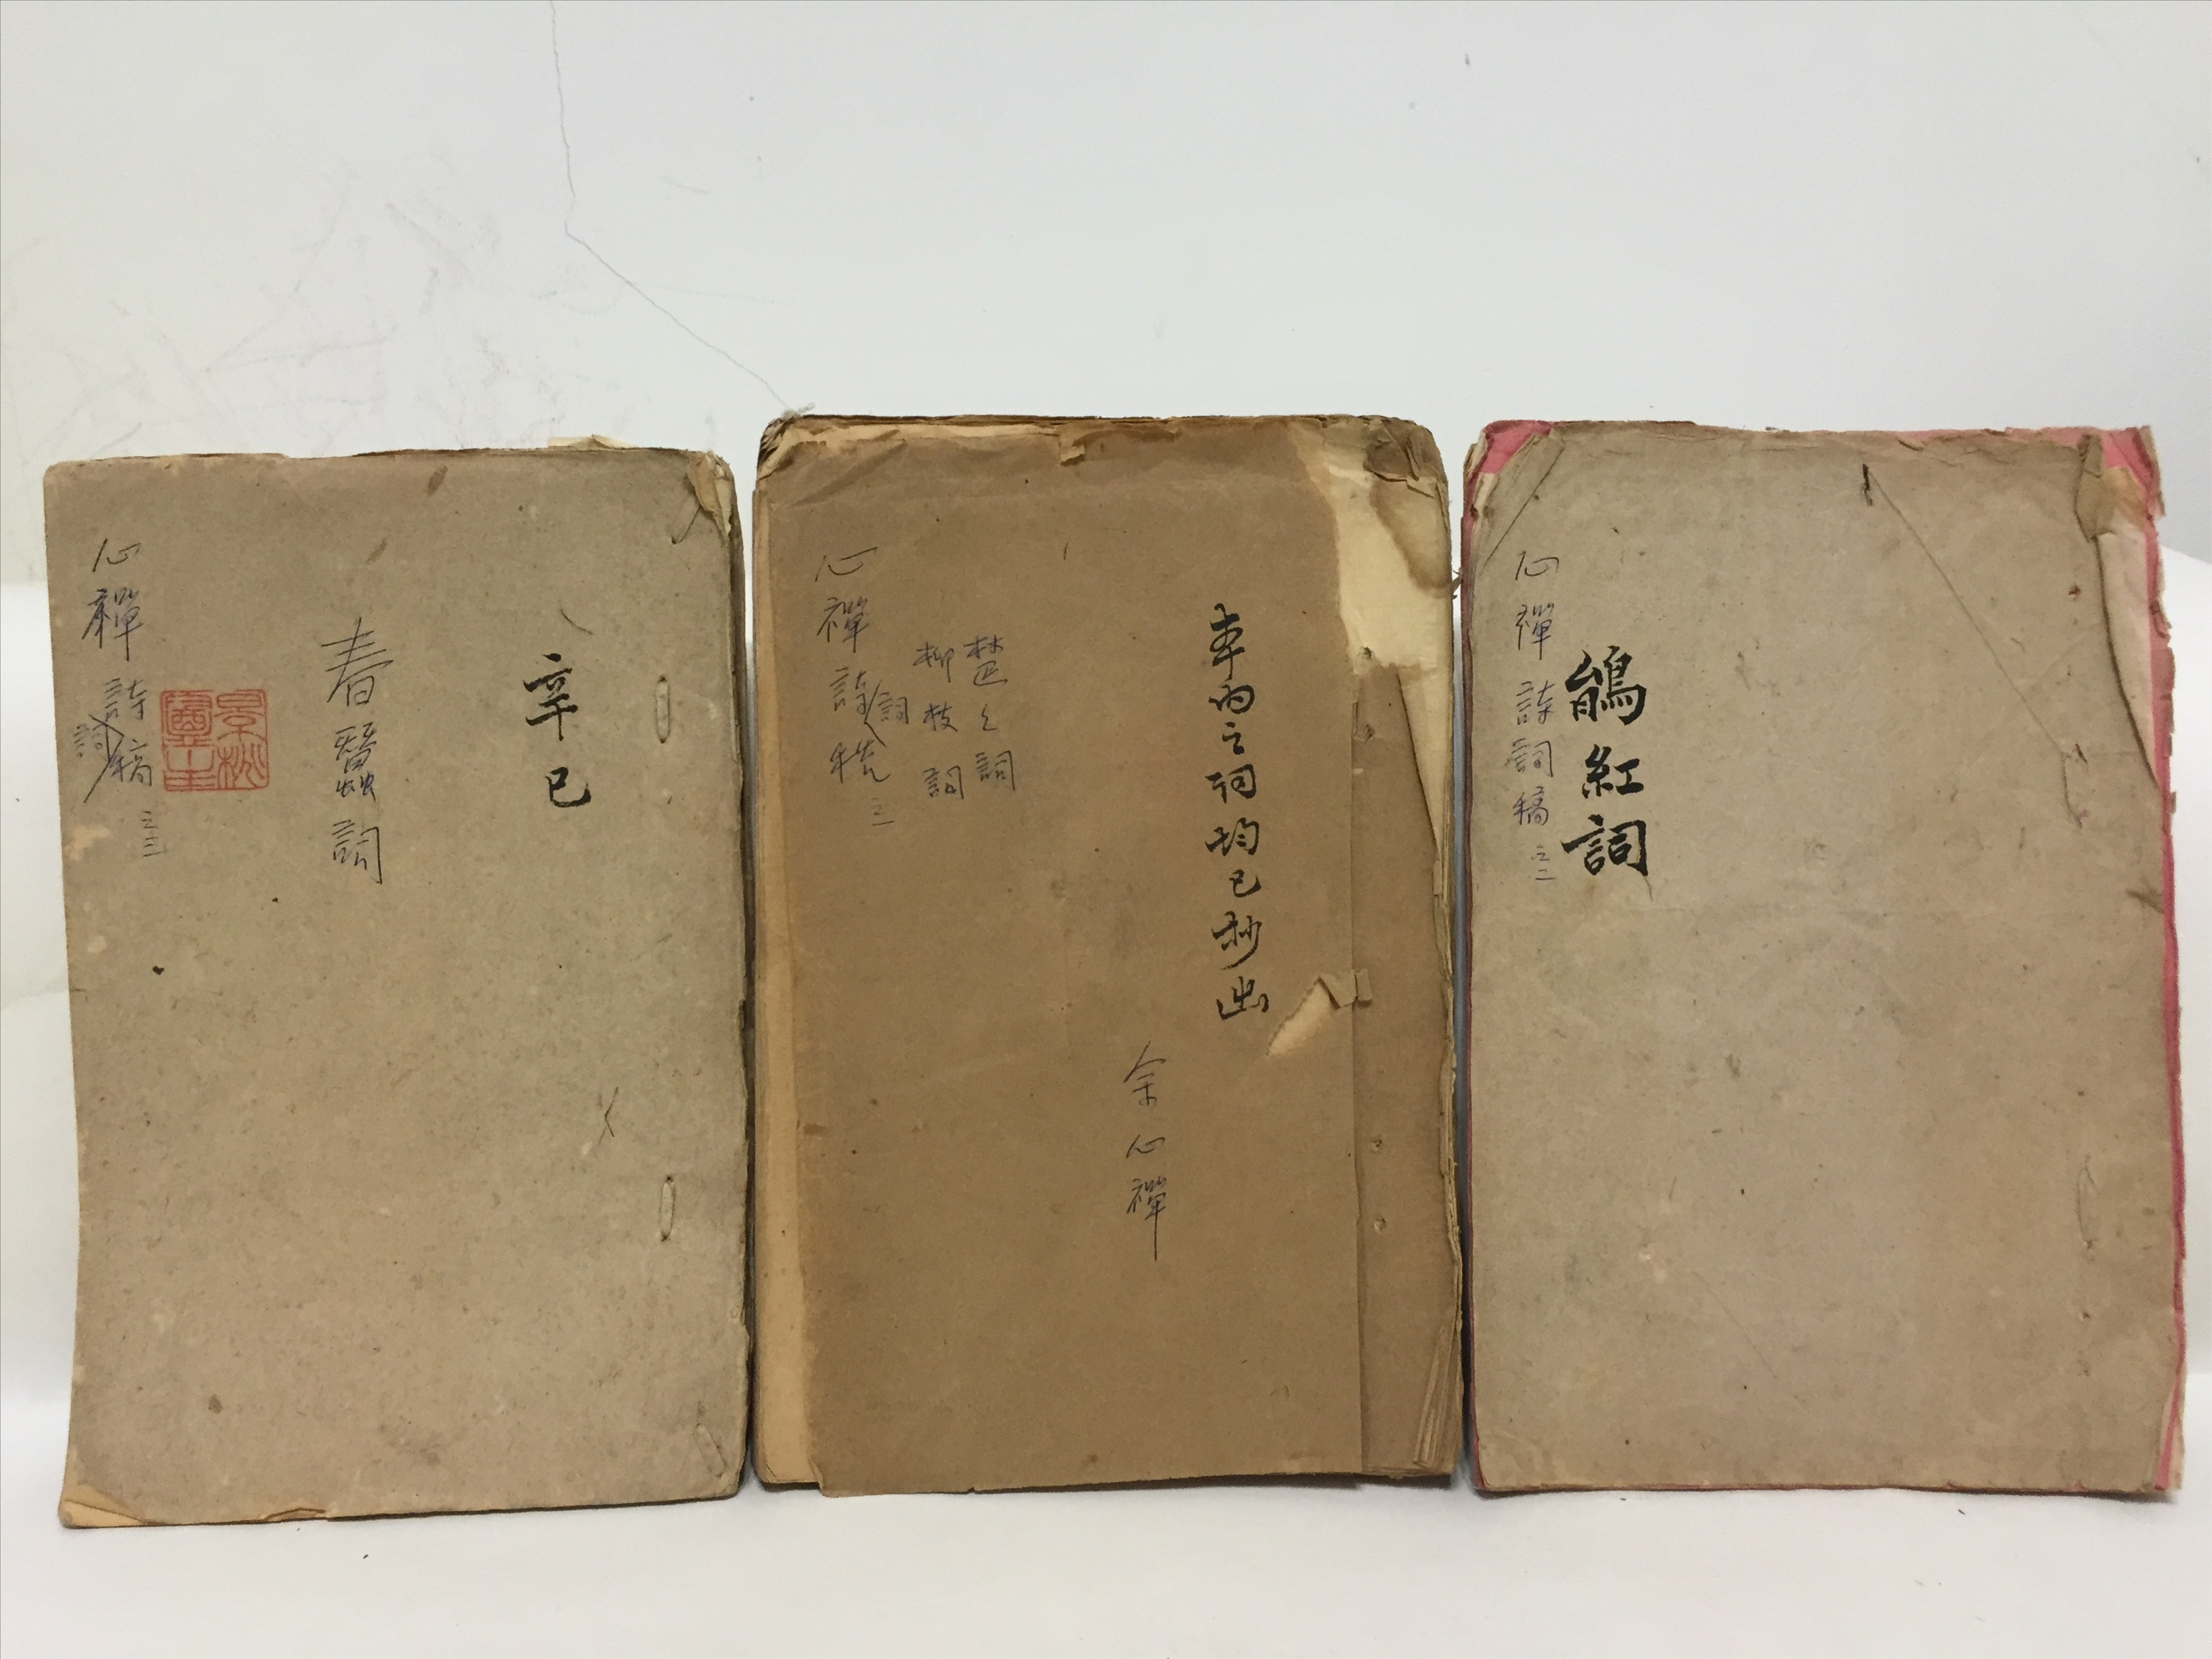 辛巳
春蠶詞
心禪詩詞稿 之三
本内之詞均已抄出
余心禪
楚之詞
柳枝詞
心禪詩詞稿 之一
鵑紅詞
心禪詩詞稿 之二